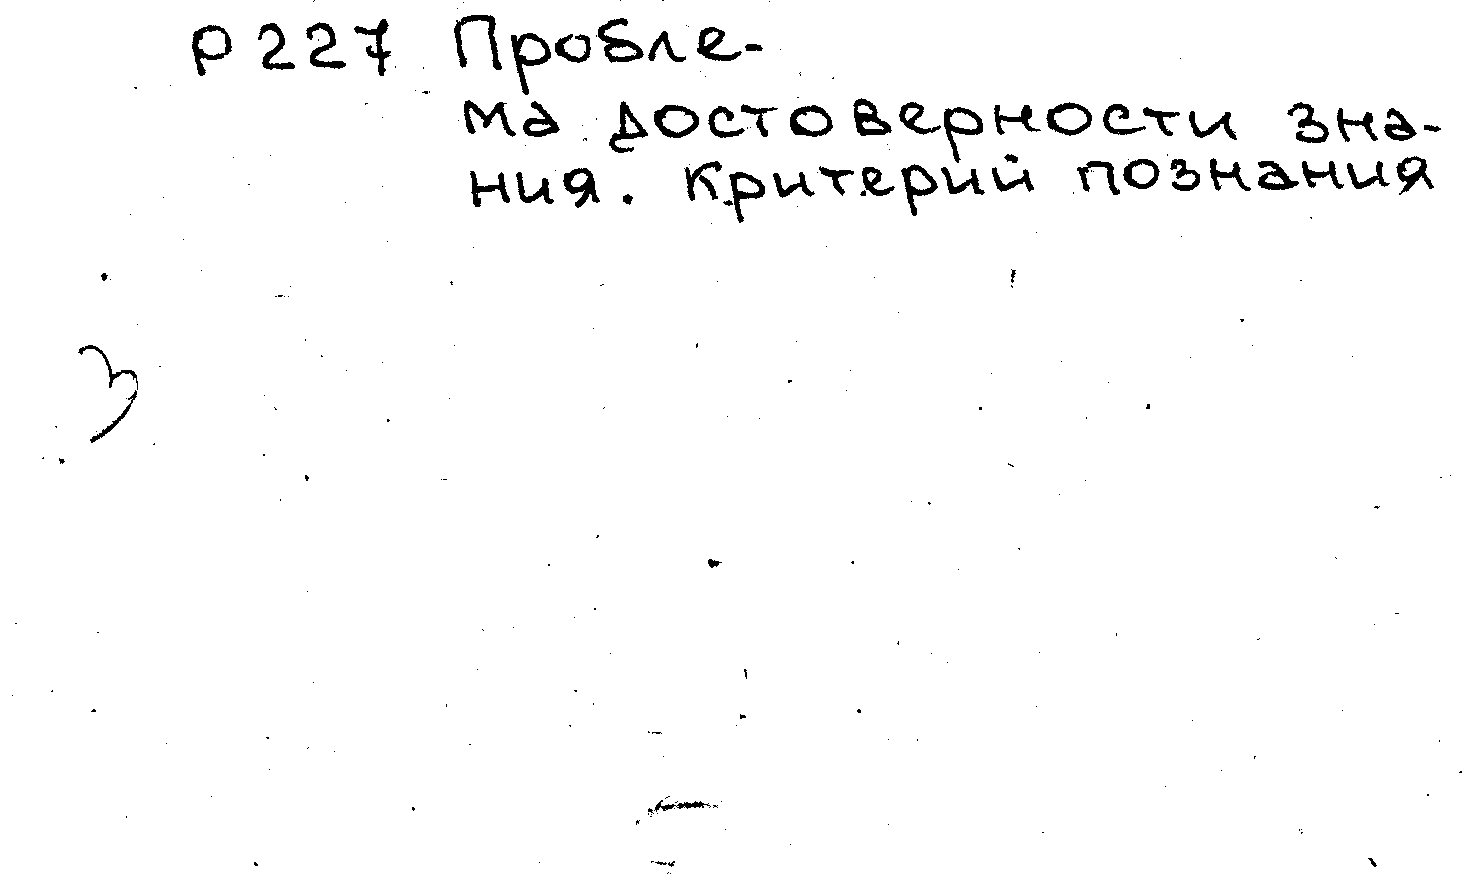 Р227 Пробле-
ма достоверности зна-
ния. Критерий познания